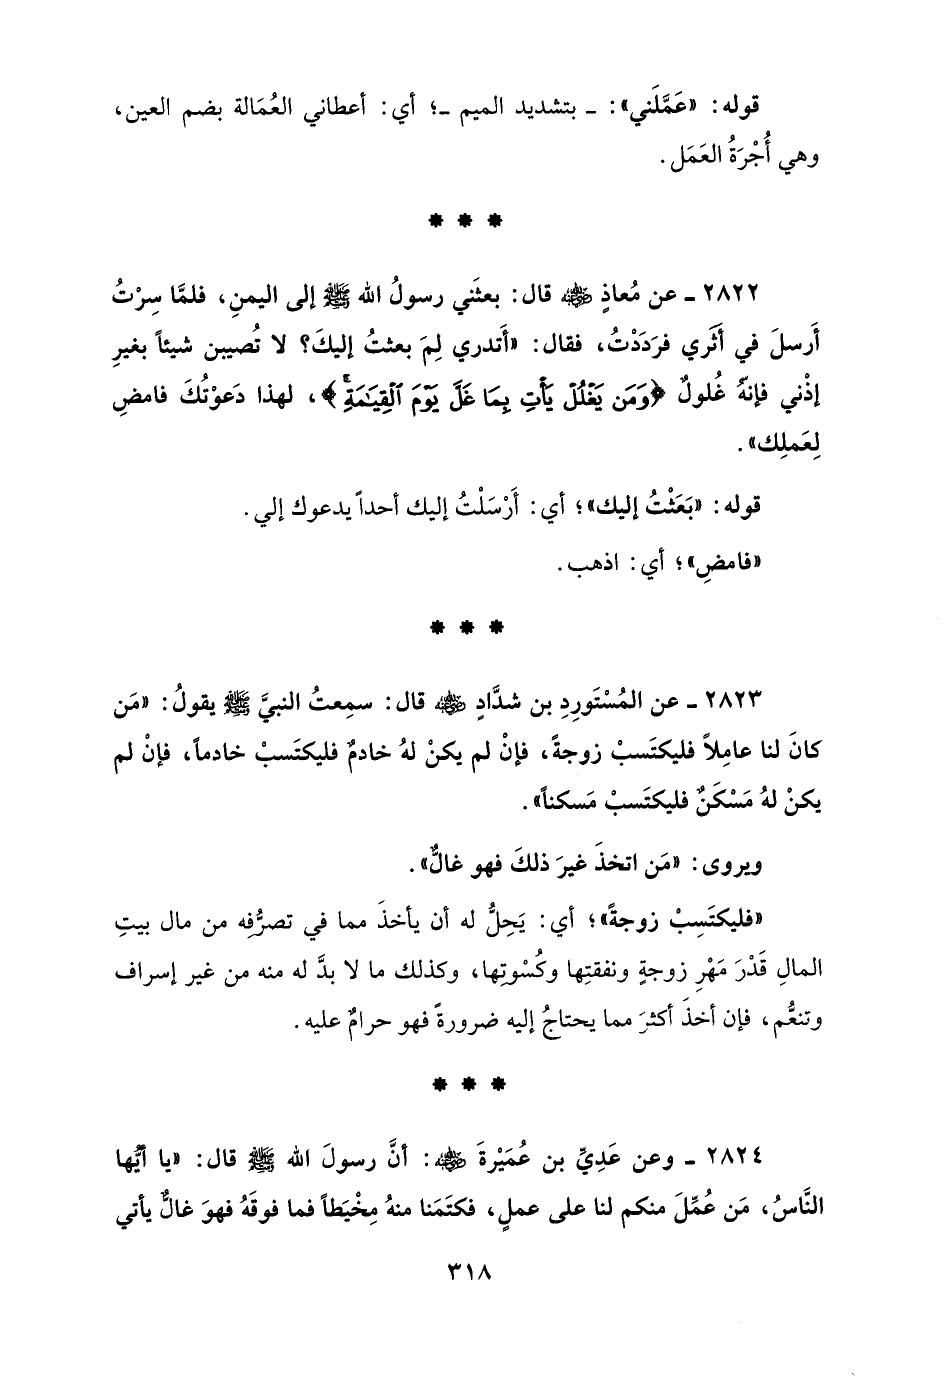 قوله: «عَمَّلَني»: ـ بتشديد الميم ـ؛ أي: أعطاني العُمَالة بضم العين،
وهي أُجْرَةُ العَمَل.
* * *
٢٨٢٢ ـ عن مُعاذٍ ﷺ قال: بعثَني رسولُ الله ﷺ إلى اليمنِ، فلمَّا سِرْتُ
أَرسلَ في أَثَري فرَدَدْتُ، فقال: «أَتدري لِمَ بعثتُ إليكَ؟ لا تُصيبن شيئاً بغيرِ
إذْني فإنهُ غُلولٌ ﴿وَمَن يَغْلُلْ يَأْتِ بِمَا غَلَّ يَوْمَ ٱلْقِيَٰمَةِۚ﴾، لهذا دَعوْتُكَ فامضِ
لِعَملِك».
قوله: «بَعَثْتُ إليك»؛ أي: أَرْسَلْتُ إليك أحداً يدعوك إلي.
«فامضِ»؛ أي: اذهب.
* * *
٢٨٢٣ ـ عن المُسْتَورِدِ بن شدَّادٍ ﷺ قال: سمِعتُ النبيَّ ﷺ يقولُ: «مَن
كانَ لنا عامِلاً فليكتَسبْ زوجةً، فإنْ لم يكنْ لهُ خادمٌ فليكتَسبْ خادماً، فإنْ لم
يكنْ لهُ مَسْكَنٌ فليكتَسبْ مَسكناً».
ويروى: «مَن اتخذَ غيرَ ذلكَ فهو غالٌّ».
«فليكتَسِبْ زوجةً»؛ أي: يَحِلُّ له أن يأخذَ مما في تصرُّفِه من مال بيتِ
المالِ قَدْرَ مَهْرِ زوجةٍ ونفقتِها وكُسْوتِها، وكذلك ما لا بدَّ له منه من غير إسراف
وتنعُّم، فإن أخذَ أكثرَ مما يحتاجُ إليه ضرورةً فهو حرامٌ عليه.
* * *
٢٨٢٤ ـ وعن عَدِيِّ بن عُمَيْرةَ ﷺ: أنَّ رسولَ الله ﷺ قال: «يا أيُّها
النَّاسُ، مَن عُمِّلَ منكم لنا على عملٍ، فكتَمَنا منهُ مِخْيَطاً فما فوقَهُ فهوَ غالٌّ يأتي
٣١٨